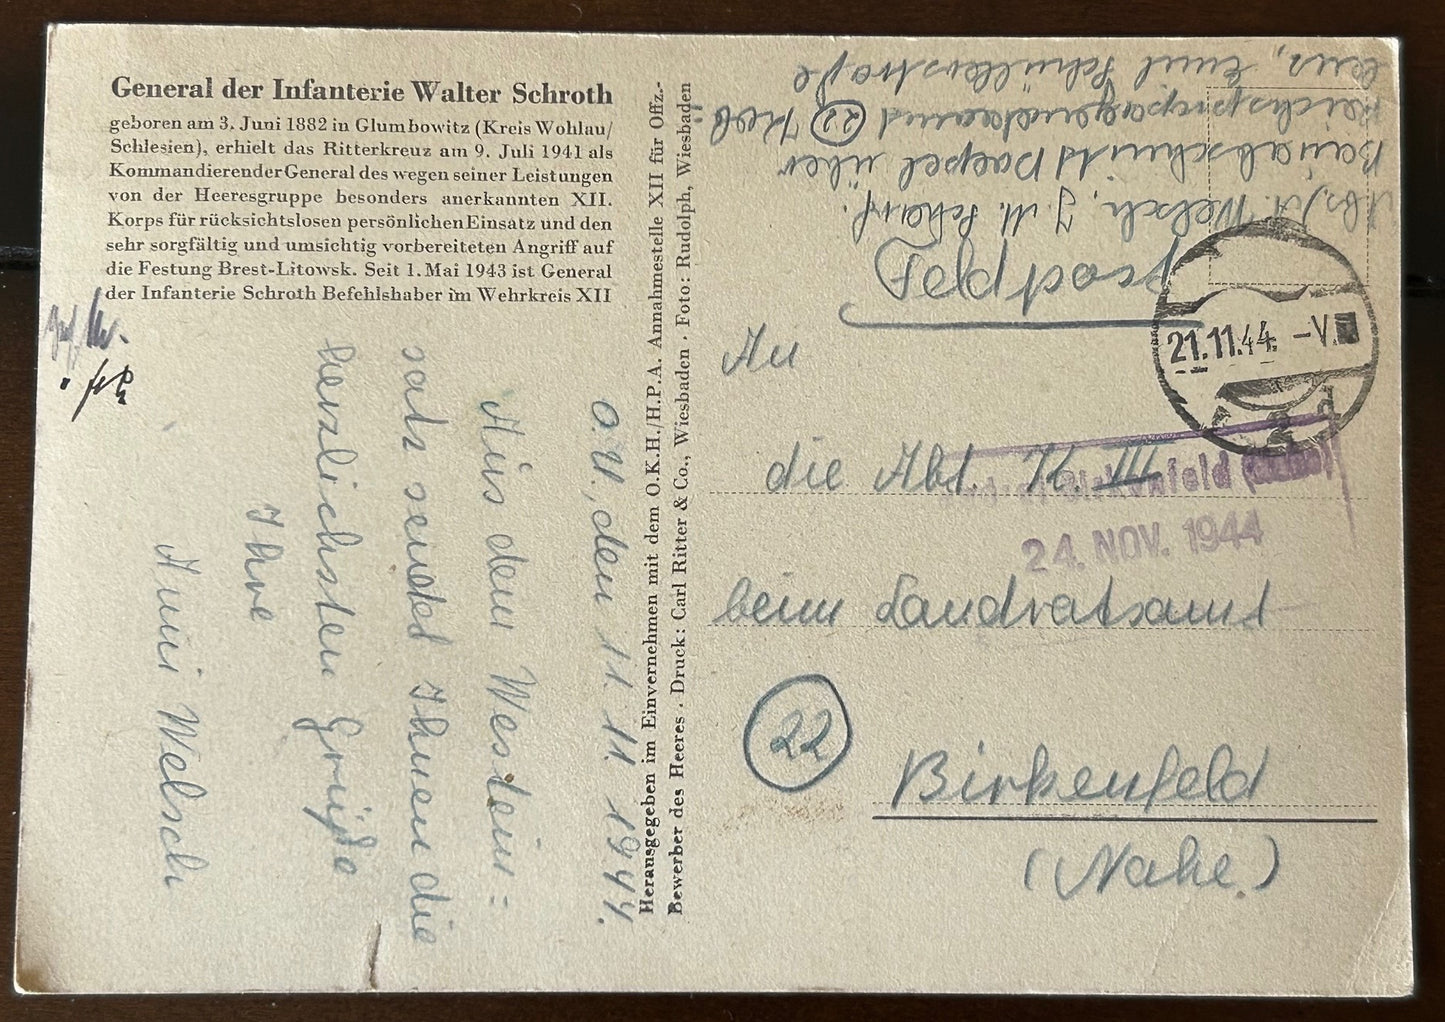 General der Infanterie Walter Schroth
geboren am 3. Juni 1882 in Glumbowitz (Kreis Wohlau/
Schlesien), erhielt das Ritterkreuz am 9. Juli 1941 als
Kommandierender General des wegen seiner Leistungen
von der Heeresgruppe besonders anerkannten XII.
Korps für rücksichtslosen persönlichen Einsatz und den
sehr sorgfältig und umsichtig vorbereiteten Angriff auf
die Festung Brest-Litowsk. Seit 1. Mai 1943 ist General
der Infanterie Schroth Befehlshaber im Wehrkreis XII
O.U., den 11.11.1944.
Aus dem Westein=
satz sendet Ihnen die
herzlichsten Grüße
Ihre
Anni Welsch
Herausgegeben im Einvernehmen mit dem O.K.H./H.P.A. Annahmestelle XII für Offz.-
Bewerber des Heeres · Druck: Carl Ritter & Co., Wiesbaden · Foto: Rudolph, Wiesbaden
Frontpost
Abs.: A. Welsch, J. M. Scharf.
Bauabschnitt Dappel über
Reichspropagandaamt (22) Kob
lenz, Emil Schüllerstraße
21.11.44. -V
An
die Abt. K. III
Birkenfeld
24. NOV. 1944
beim Landratsamt
22
Birkenfeld
(Nahe.)